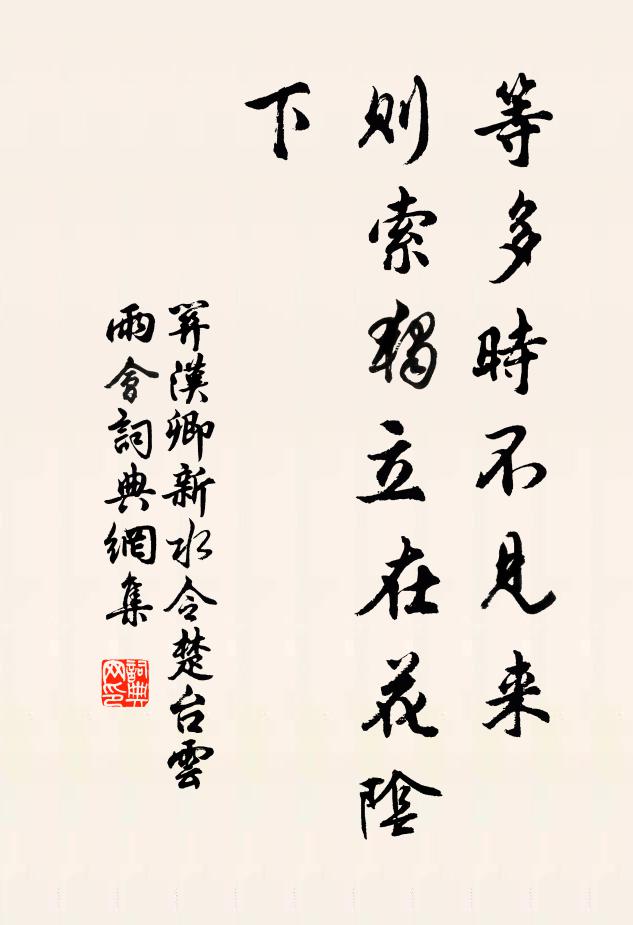 等多時不見来
則索獨立在花陰
下
關漢卿新水令楚台雲
雨會詞典網集
詞典網印